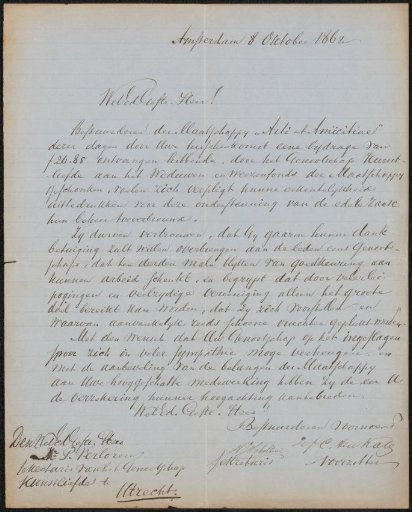 Amsterdam 8 Oktober 1862
WelEd. Geste. Heer!
Bestuurderen der Maatschappy „Arti et Amicitiae”
dezer dagen door Uwe tusschenkomst eene bydrage van
f 26.85 ontvangen hebbende, door het Genootschap Kunst-
liefde aan het Weduwen en Weezenfonds der Maatschappy
geschonken, voelen zich verpligt hunne erkentelykheid
uittedrukken voor deze ondersteuning van de edele zaak
hun beheer toevertrouwd.
Zy durven vertrouwen, dat Gy gaarne hunne dank-
betuiging zult willen overbrengen aan de leden eens Genoot-
schaps, dat ten derden male blyken van goedkeuring aan
hunnen arbeid schenkt, en begrypt dat door velerlei
pogingen en veelzydige vereeniging alleen het groote
doel bereikt kan worden, dat zy zich voorstellen en
waarvan aanvankelyk reeds schoone vruchten geplukt worden.
Met den wensch dat Uw Genootschap op het ingeslagen
spoor zich in veler sympathie moge verheugen, en
met de aanbeveling van de belangen der Maatschappy
aan Uwe hooggeschatte medewerking hebben zy de eer U
de verzekering hunner hoogachting aantebieden.
WelEd. Geste. Heer
Bestuurderen voornoemd
Secretaris Voorzitter
Den WelEd. Geste. Heer
Mr. P. Verloren
Sekretaris van het Genootschap
Kunstliefde te
Utrecht.